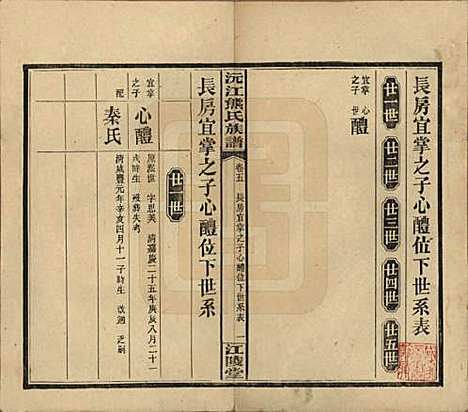 長房宜掌之子心醴位下世系表
廿一世
廿二世
廿三世
廿四世
廿五世
宜掌
之子
心醴
沅江熊氏族譜
卷五
長房宜掌之子心醴位下世系表
一
江陵堂
長房宜掌之子心醴位下世系
廿一世
宜掌
之子
心醴
原派世 字思美 清嘉慶二十五年庚辰八月二十一
戌時生 歿葬失考
配
秦氏
清咸豐元年辛亥四月十一子時生 改適 乏嗣